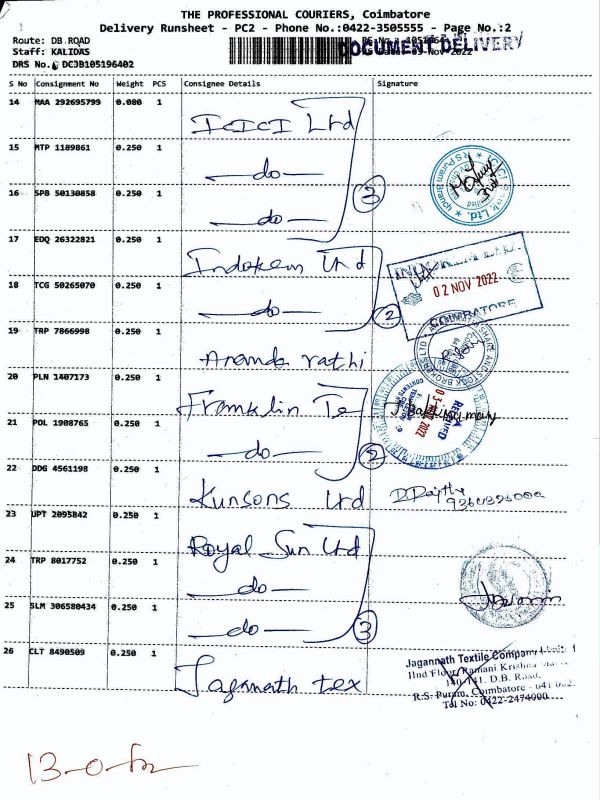 THE PROFESSIONAL COURIERS, Coimbatore
Delivery Runsheet - PC2 - Phone No.:0422-3505555 - Page No.:2
Route: DB ROAD
DOCUMENT DELIVERY
Staff: KALIDAS
DRS No. DC3B105196402
S No Consignment No Weight PCS Consignee Details Signature
14 MAA 292695799 0.080 1 ICICI Ltd
15 MTP 1189861 0.250 1 —do—
16 SPB 50130858 0.250 1 —do— 3
17 EDQ 26322821 0.250 1 Indokem Ltd
02 NOV 2022
COIMBATORE
18 TCG 50265070 0.250 1 —do— 2
19 TRP 7866998 0.250 1 Ananda rathi
20 PLN 1407173 0.250 1 Franklin Te
RECEIVED
21 POL 1908765 0.250 1 —do— 2
22 DDG 4561198 0.250 1 Kunsons Ltd
23 UPT 2095842 0.250 1 Royal Sun Ltd
24 TRP 8017752 0.250 1 —do—
25 SLM 306580434 0.250 1 —do— 3
26 CLT 8490509 0.250 1 Jagannath tex
Jagannath Textile Company
IInd Floor, Ramani Krishna
140-141, D.B. Road,
R.S. Puram, Coimbatore - 641 002.
Tel No: 0422-2474000